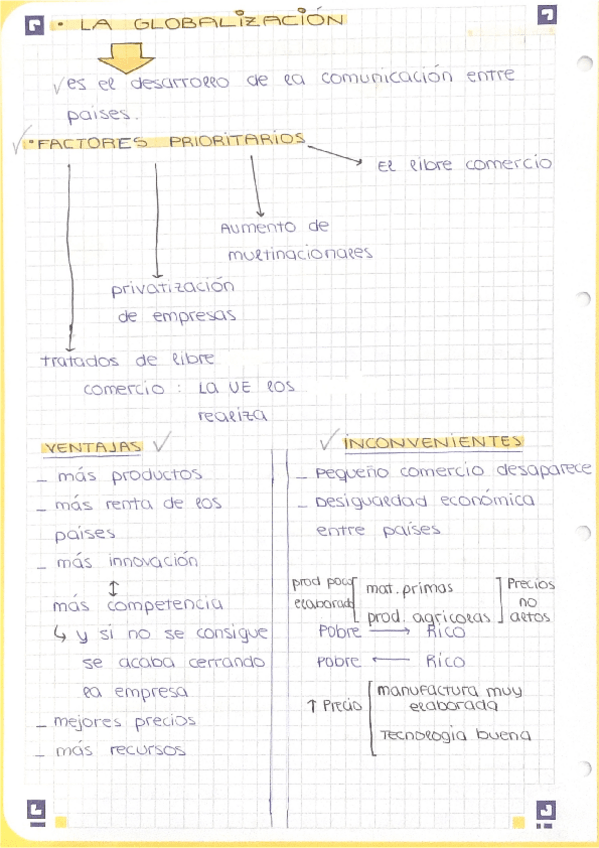 · LA GLOBALIZACIÓN
✓ es el desarrollo de la comunicación entre
países.
✓ · FACTORES PRIORITARIOS
El libre comercio
Aumento de
multinacionales
privatización
de empresas
tratados de libre
comercio : LA UE los
realiza
VENTAJAS ✓
- más productos
- más renta de los
países
- más innovación
↕
más competencia
↳ y si no se consigue
se acaba cerrando
la empresa
- mejores precios
- más recursos
✓ INCONVENIENTES
- Pequeño comercio desaparece
- Desigualdad económica
entre países
prod poco
elaborado
mat. primas
prod. agricolas
Precios
no
altos
Pobre → Rico
Pobre ← Rico
↑ Precio
manufactura muy
elaborada
Tecnología buena